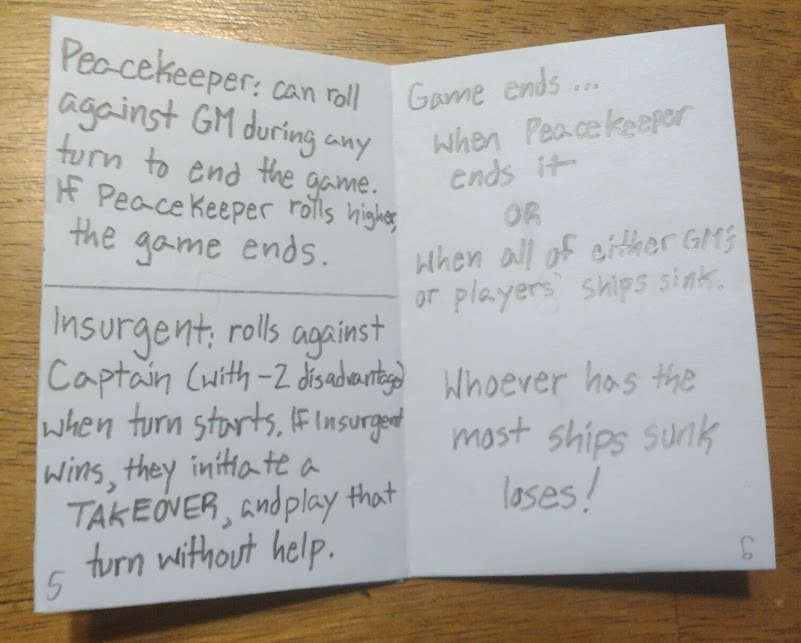 Peacekeeper: can roll
against GM during any
turn to end the game.
If Peacekeeper rolls higher,
the game ends.
Insurgent: rolls against
Captain (with -2 disadvantage)
when turn starts. If Insurgent
wins, they initiate a
TAKEOVER, and play that
turn without help.
5
Game ends...
when Peacekeeper
ends it
OR
when all of either GM's
or players' ships sink.
Whoever has the
most ships sunk
loses!
6